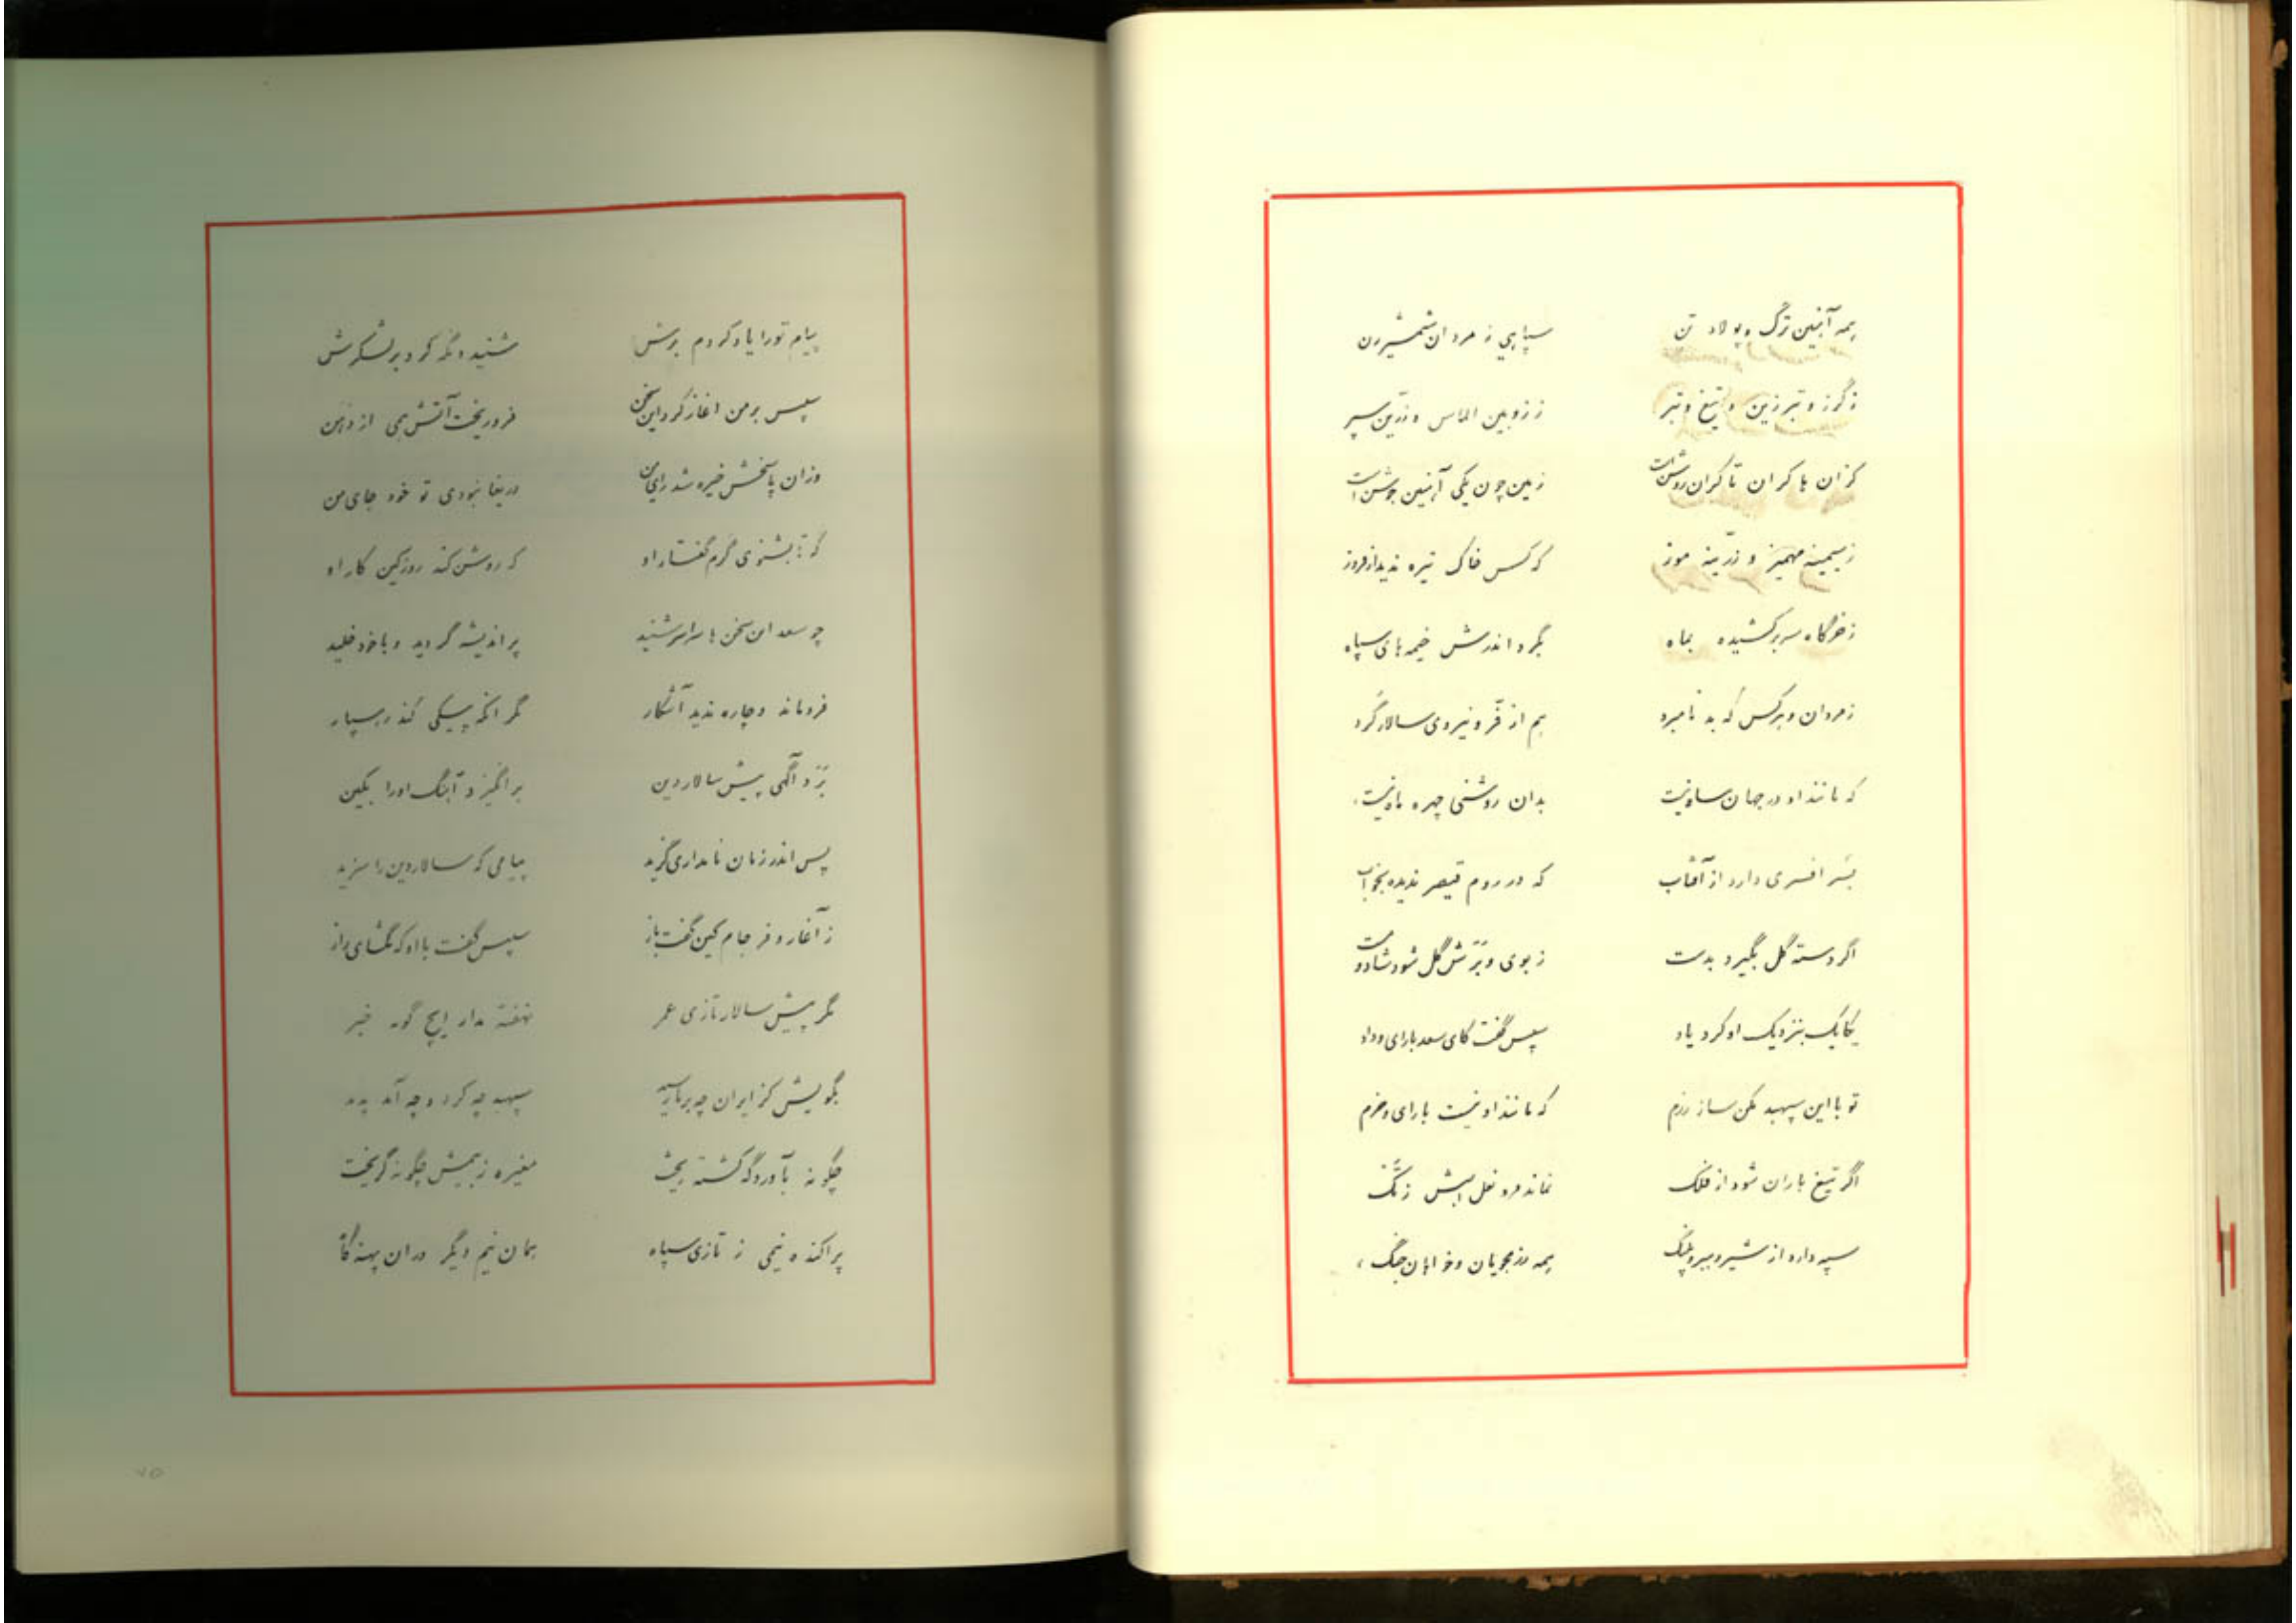 همه آهنین ترگ و پولاد تن سپاهی ز مردان شمشیرزن
ز گرز و تبرزین و تیغ و تبر ز زوبین الماس و زرین سپر
کران با کران تا کران روشن است زمین چون یکی آهنین جوشن است
ز سیمینه مهمیز و زرینه موزه که کس خاک تیره ندید از فروز
ز خرگاه سر برکشیده بماه بگرد اندرش خیمه های سپاه
ز مردان و هر کس که بد نامبرد هم از فر و نیروی سالار گرد
که مانند او در جهان ساونیست بدان روشنی چهره ماه نیست
بسر افسری دارد از آفتاب که در روم قیصر ندیده بخواب
اگر دسته گل بگیرد بدست ز بوی و برش گل شود شاد و مست
یکایک بنزدیک او کرد یاد سپس گفت کای سعد با رای و داد
تو با این سپهبد مکن ساز رزم که مانند او نیست با رای و حزم
اگر تیغ باران شود از فلک نماند مرو نعل اسبش ز تگ
سپه دارد از شیر و ببر و پلنگ همه رزمجویان و خواهان جنگ
پیام تو را یاد کردم برش شنید و نگه کرد بر لشکرش
سپس بر من اغاز کرد این سخن فرو ریخت آتش همی از دهن
وزان پاسخش خیره شد رای من دریغا نبودی تو خود جای من
که تا بشنوی گرم گفتار او که روشن کند روز کین کار او
چو سعد این سخن ها سراسر شنید پر اندیشه گردید و با خود خلید
فروماند و چاره ندید آشکار مگر انکه پیکی کند رهسپار
برد آگهی پیش سالار دین برانگیزد آهنگ او را بکین
پس اندر زمان نامداری گزید پیامی که سالار دین را سزید
ز آغاز و فرجام کین گفت باز سپس گفت با او که بگشای راز
مگر پیش سالار تازی عمر نهفته مدار ایچ گونه خبر
بگویش کز ایران چه بر ما رسید سپهبد چه کرد و چه آمد پدید
چگونه بآوردگه کشته ریخت مغیره ز بیمش چگونه گریخت
پراکنده نیمی ز تازی سپاه همان نیم دیگر در ان پهنه گاه
۷۵